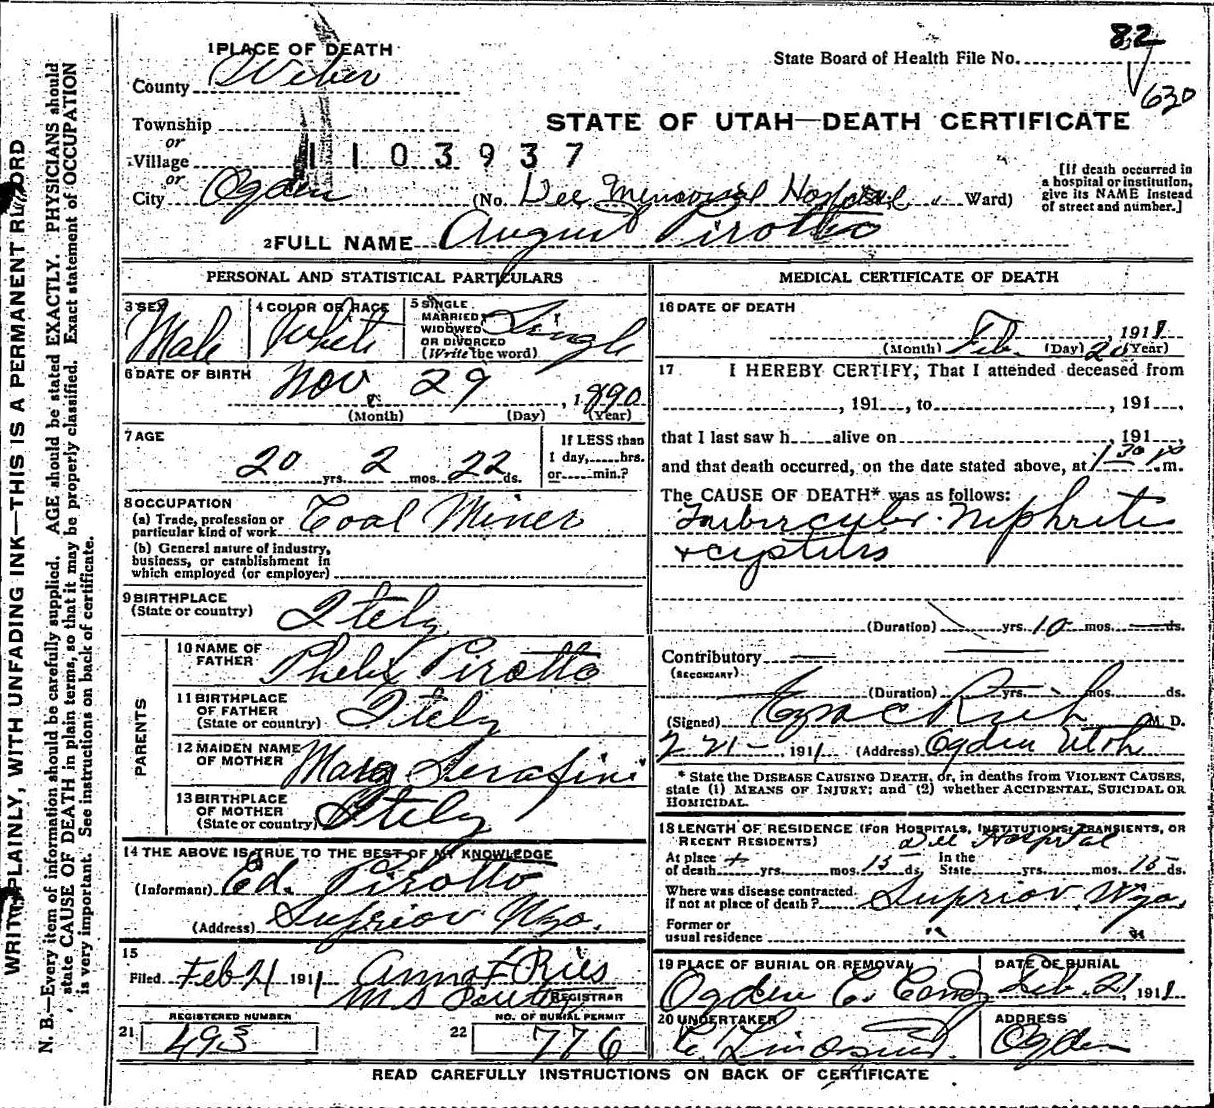 82
630
1 PLACE OF DEATH
State Board of Health File No.
County Weber
Township
or
Village
1103937
or
City Ogden
STATE OF UTAH—DEATH CERTIFICATE
(No. Dee Memorial Hospital Ward)
[If death occurred in
a hospital or institution,
give its NAME instead
of street and number.]
2 FULL NAME August Pirotto
WRITE PLAINLY, WITH UNFADING INK—THIS IS A PERMANENT RECORD
N. B.—Every item of information should be carefully supplied. AGE should be stated EXACTLY. PHYSICIANS should
state CAUSE OF DEATH in plain terms, so that it may be properly classified. Exact statement of OCCUPATION
is very important. See instructions on back of certificate.
PERSONAL AND STATISTICAL PARTICULARS
3 SEX
Male
4 COLOR OR RACE
White
5 SINGLE
MARRIED
WIDOWED
OR DIVORCED
(Write the word)
Single
6 DATE OF BIRTH
Nov. 29, 1890
(Month) (Day) (Year)
7 AGE
20 yrs. 2 mos. 22 ds.
If LESS than
1 day, hrs.
or min.?
8 OCCUPATION
(a) Trade, profession or
particular kind of work Coal Miner
(b) General nature of industry,
business, or establishment in
which employed (or employer)
9 BIRTHPLACE
(State or country) Itely
PARENTS
10 NAME OF
FATHER Phelix Pirotto
11 BIRTHPLACE
OF FATHER
(State or country) Itely
12 MAIDEN NAME
OF MOTHER Mary Serafini
13 BIRTHPLACE
OF MOTHER
(State or country) Itely
14 THE ABOVE IS TRUE TO THE BEST OF MY KNOWLEDGE
(Informant) Ed. Pirotto
(Address) Suprior Wyo.
15
Filed Feb 21 1911 Anna F Ries
REGISTRAR
REGISTERED NUMBER
21 493
NO. OF BURIAL PERMIT
22 776
MEDICAL CERTIFICATE OF DEATH
16 DATE OF DEATH
Feb. 20, 1911
(Month) (Day) (Year)
17 I HEREBY CERTIFY, That I attended deceased from
, 191 , to , 191 ,
that I last saw h alive on , 191 ,
and that death occurred, on the date stated above, at 1 30 P m.
The CAUSE OF DEATH* was as follows:
Tubercular Niphrites
+ cystitis
(Duration) yrs. 10 mos. ds.
Contributory
(SECONDARY)
(Duration) yrs. mos. ds.
(Signed) Ezra C Rich M. D.
2 21 - 1911 (Address) Ogden Utah
* State the DISEASE CAUSING DEATH, or, in deaths from VIOLENT CAUSES,
state (1) MEANS OF INJURY; and (2) whether ACCIDENTAL, SUICIDAL OR
HOMICIDAL.
18 LENGTH OF RESIDENCE (FOR HOSPITALS, INSTITUTIONS, TRANSIENTS, OR
RECENT RESIDENTS) Dee Hospital
At place
of death yrs. mos. 15 ds.
In the
State yrs. mos. 15 ds.
Where was disease contracted
if not at place of death? Suprior, Wyo.
Former or
usual residence " "
19 PLACE OF BURIAL OR REMOVAL
Ogden C. Cemy
DATE OF BURIAL
Feb. 21, 1911
20 UNDERTAKER
ADDRESS
Ogden
READ CAREFULLY INSTRUCTIONS ON BACK OF CERTIFICATE